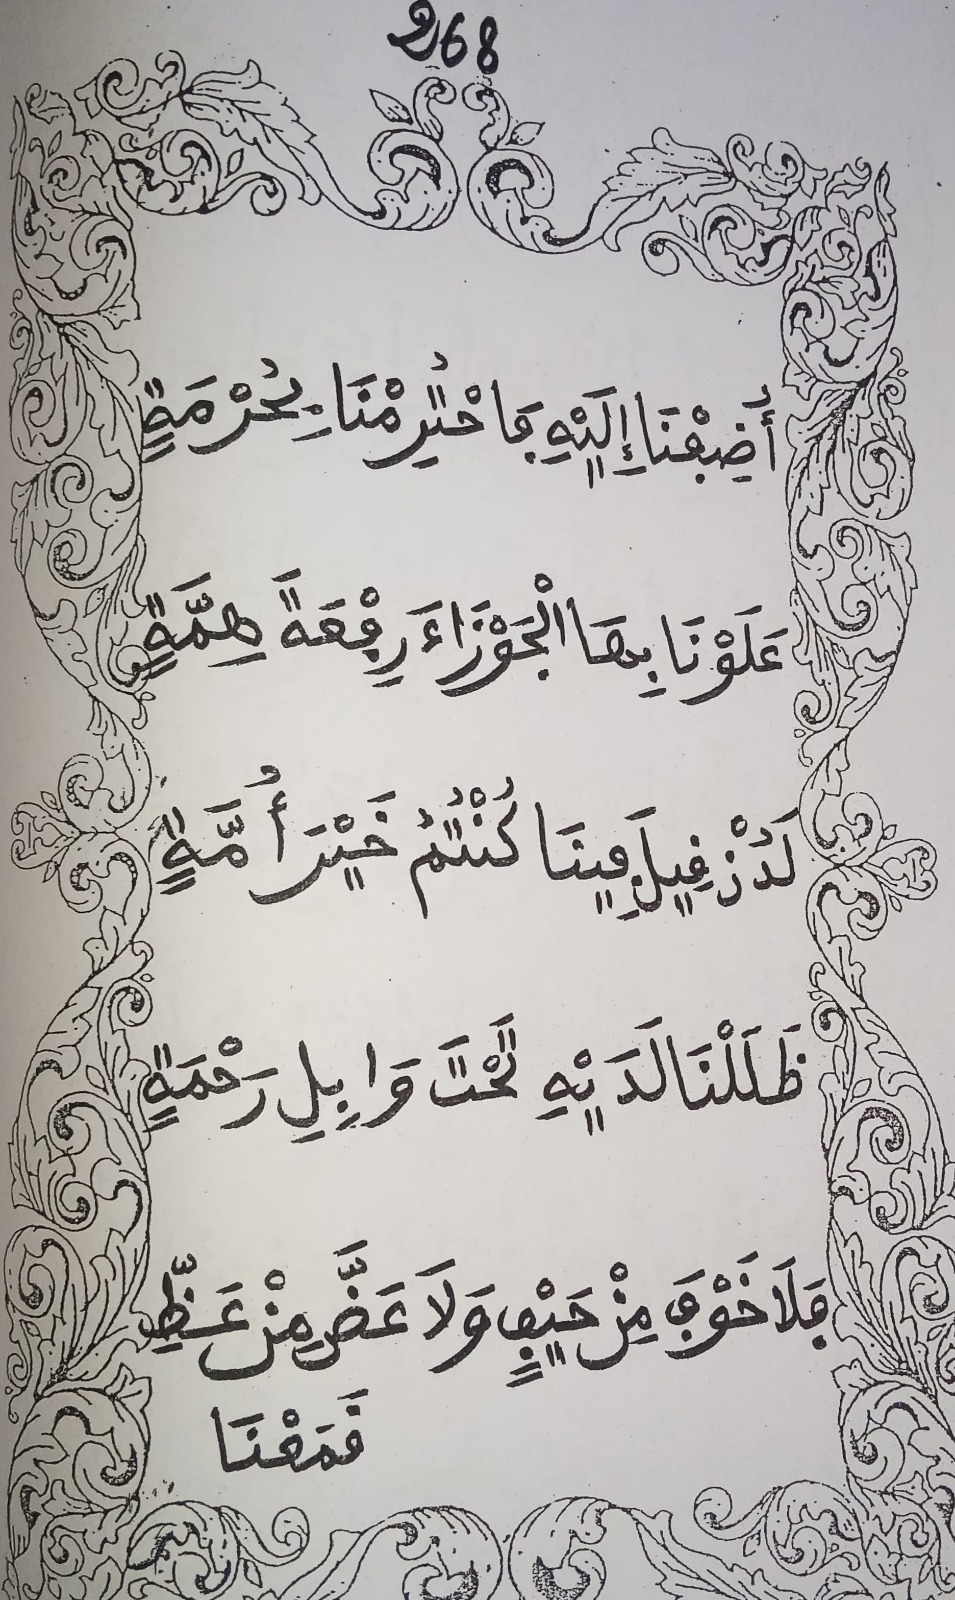 268
أُضِفْنَا إِلَيْهِ فَاحْتُرِمْنَا بِحُرْمَةٍ
عَلَوْنَا بِهَا الْجَوْزَاءَ رِفْعَةَ هِمَّةٍ
لَدُنْ قِيلَ فِينَا كُنْتُمُ خَيْرَ أُمَّةٍ
ظَلَلْنَا لَدَيْهِ تَحْتَ وَابِلِ رَحْمَةٍ
فَلَا خَوْفَ مِنْ حَيْفٍ وَلَا عَضَّ مِنْ عَظِّ
قَمَعْنَا